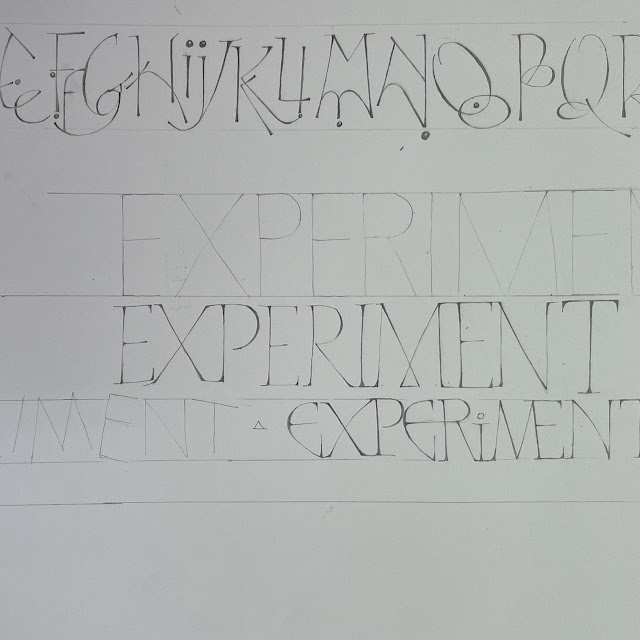 EFGHijKLMNOPQR
EXPERIMEN
EXPERIMENT
IMENT EXPERiMENT